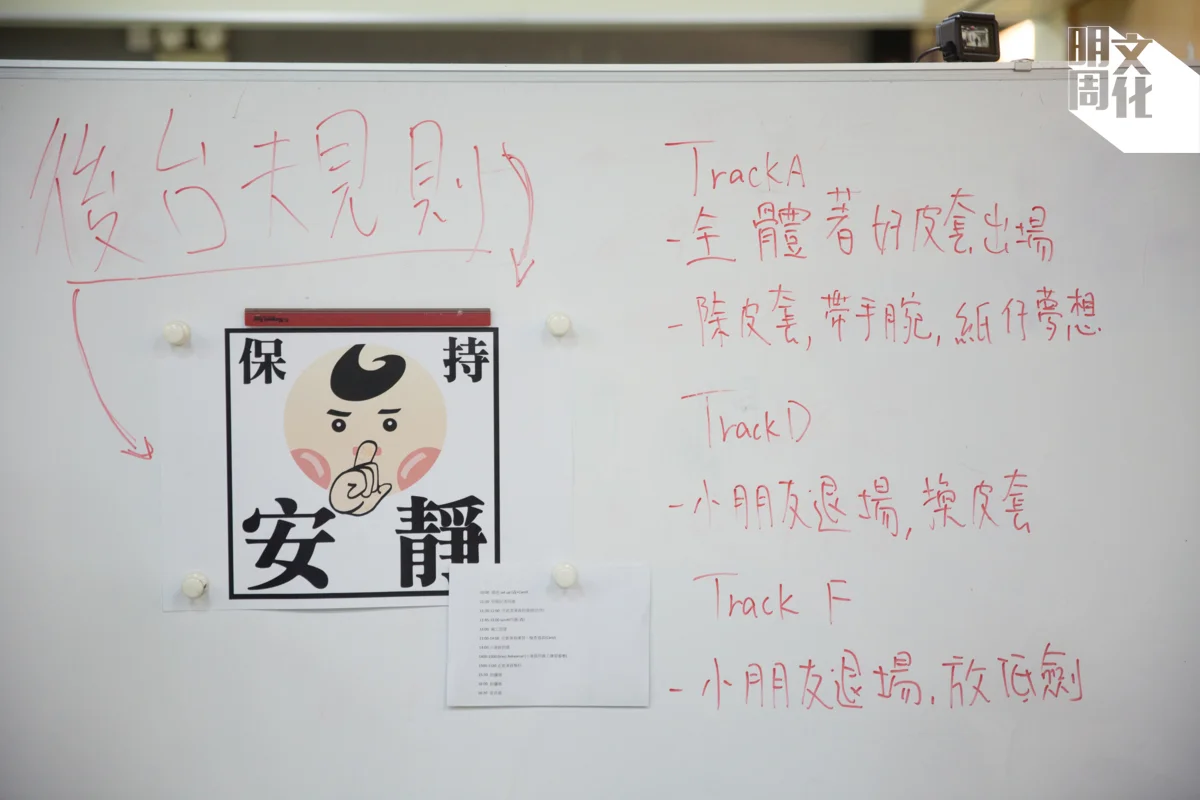 明周文化
後台規則
保持
安靜
Track A
- 全體著好皮套出場
- 除皮套, 帶手腕, 紙仔夢想
Track D
- 小朋友退場, 換皮套
Track F
- 小朋友退場. 放低劍